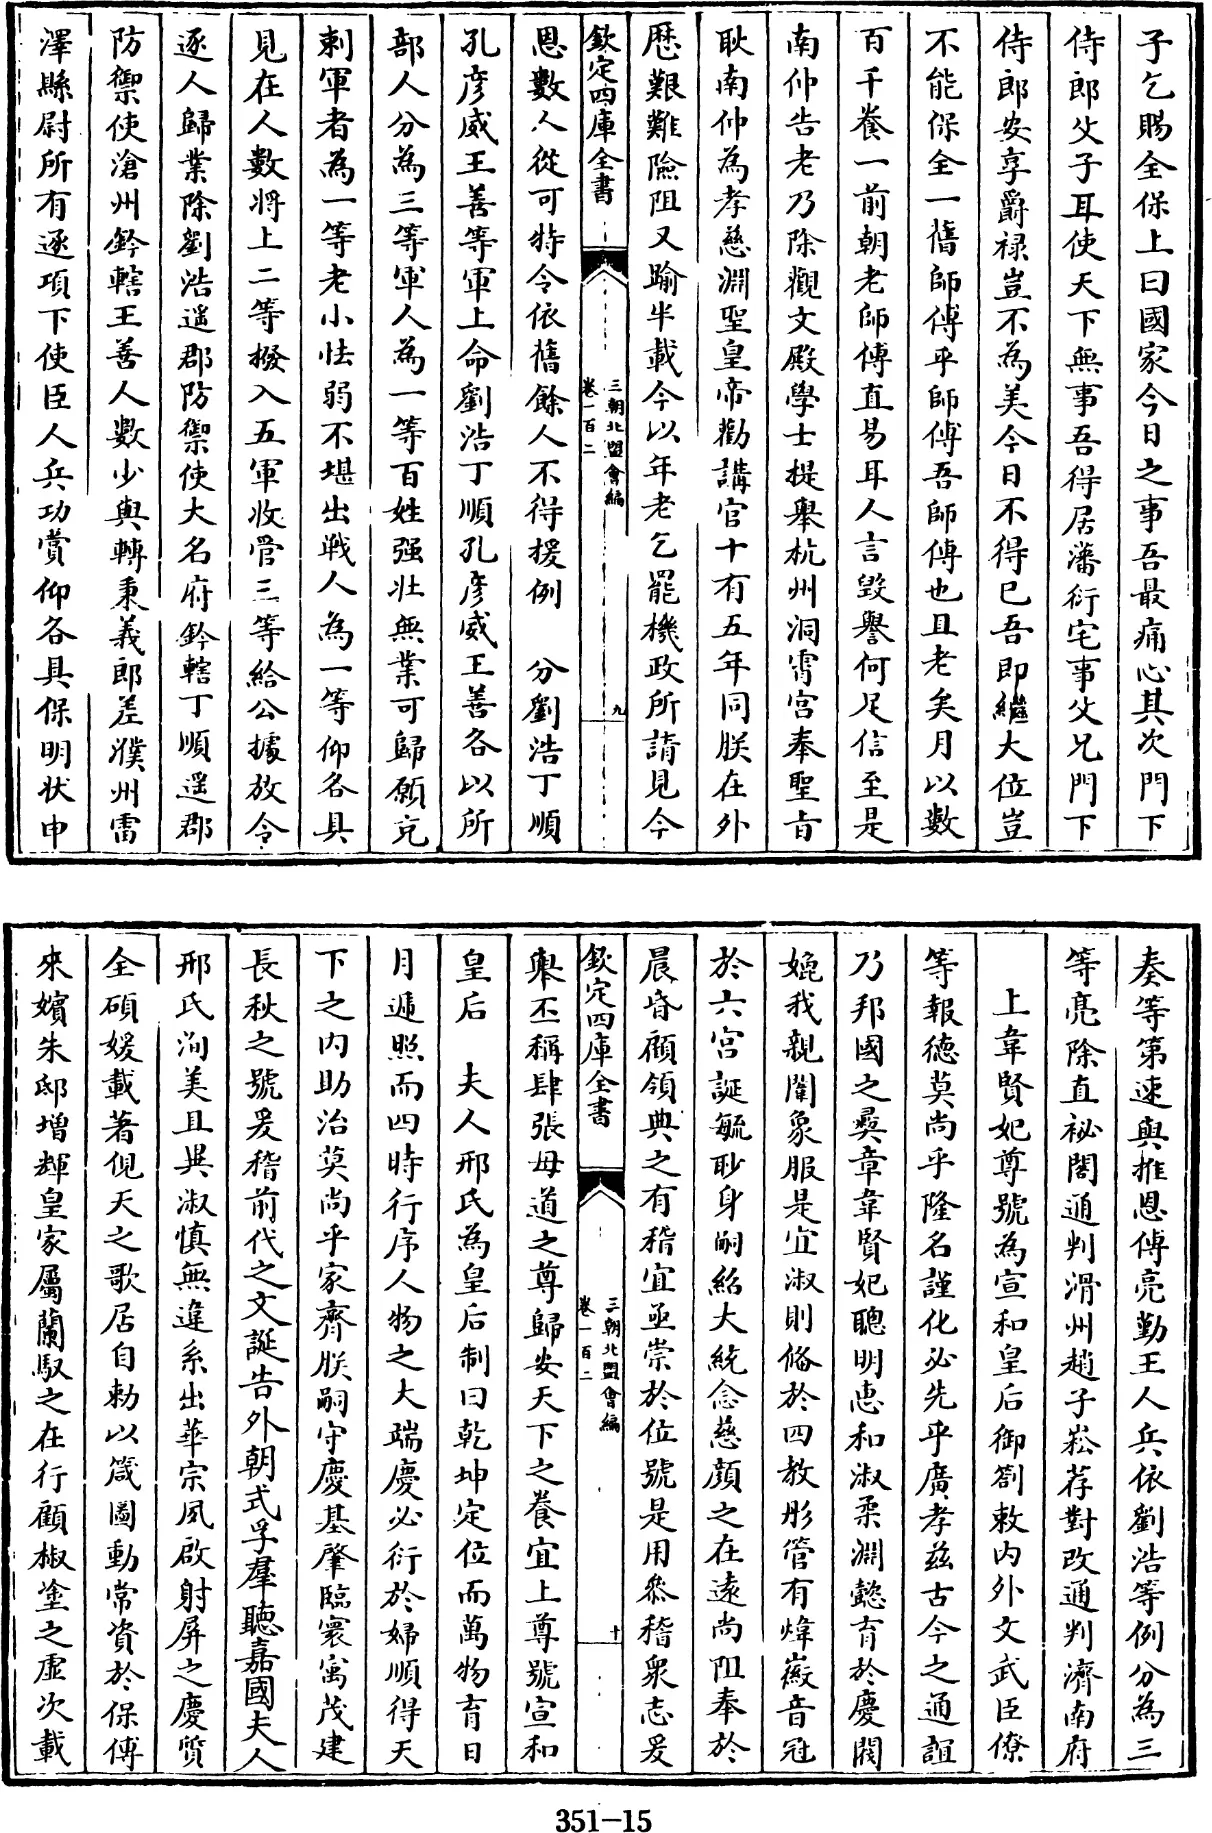 子乞賜全保上曰國家今日之事吾最痛心其次門下
侍郎父子耳使天下無事吾得居藩衍宅事父兄門下
侍郎安享爵禄豈不為美今日不得已吾即繼大位豈
不能保全一舊師傅乎師傅吾師傅也且老矣月以數
百千養一前朝老師傅直易耳人言毀譽何足信至是
南仲告老乃除觀文殿學士提舉杭州洞霄宫奉聖㫖
耿南仲為孝慈淵聖皇帝勸講官十有五年同朕在外
歷艱難險阻又踰半載今以年老乞罷機政所請見今
欽定四庫全書
三朝北盟會編
卷一百二
九
恩數人從可特令依舊餘人不得援例 分劉浩丁順
孔彦威王善等軍上命劉浩丁順孔彦威王善各以所
部人分為三等軍人為一等百姓强壯無業可歸願充
刺軍者為一等老小怯弱不堪出戰人為一等仰各具
見在人數將上二等撥入五軍收管三等給公據放令
逐人歸業除劉浩遥郡防禦使大名府鈐轄丁順遥郡
防禦使滄州鈐轄王善人數少與轉秉義郎差濮州雷
澤縣尉所有逐項下使臣人兵功賞仰各具保明状申
奏等第速與推恩傅亮勤王人兵依劉浩等例分為三
等亮除直祕閣通判滑州趙子崧荐對改通判濟南府
上韋賢妃尊號為宣和皇后御劄敕内外文武臣僚
等報德莫尚乎隆名謹化必先乎廣孝兹古今之通誼
乃邦國之彛章韋賢妃聰明惠和淑柔淵懿育於慶閥
媲我親闈象服是宜淑則脩於四教彤管有煒徽音冠
於六宫誕毓眇身嗣紹大統念慈顔之在遠尚阻奉於
晨昏顧領典之有稽宜亟崇於位號是用叅稽衆志爰
欽定四庫全書
三朝北盟會編
卷一百二
十
舉丕稱肆張母道之尊歸安天下之養宜上尊號宣和
皇后 夫人邢氏為皇后制曰乾坤定位而萬物育日
月遞照而四時行序人物之大端慶必衍於婦順得天
下之内助治莫尚乎家齊朕嗣守慶基肇臨寰㝢茂建
長秋之號爰稽前代之文誕告外朝式孚羣聽嘉國夫人
邢氏洵美且異淑慎無違系出華宗夙啟射屏之慶質
全碩媛載著俔天之歌居自勅以箴圖動常資於保傅
來嬪朱邸増輝皇家屬蘭馭之在行顧椒塗之虚次載
351-15